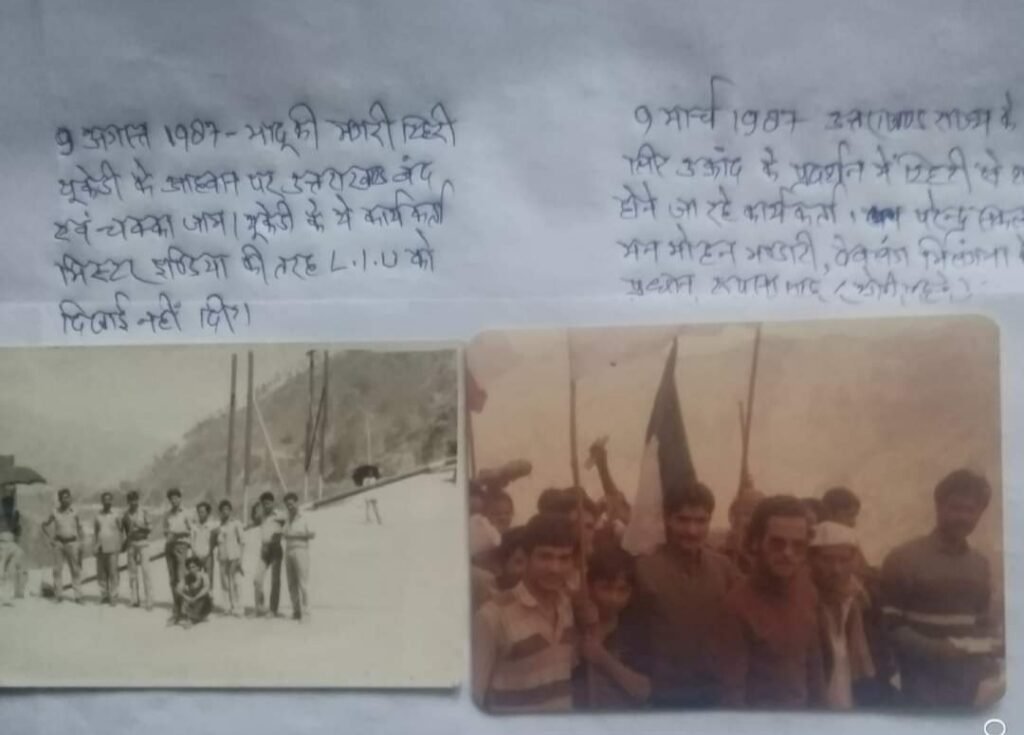 9 अगस्त 1987 - भादू की मगरी टिहरी
यूकेडी के आह्वान पर उत्तराखण्ड बंद
एवं चक्का जाम। यूकेडी के ये कार्यकर्ता
मिस्टर इण्डिया की तरह L.I.U को
दिखाई नहीं दिए।
9 मार्च 1987 उत्तराखण्ड राज्य के
लिए उक्रांद के प्रदर्शन में टिहरी से
होने जा रहे कार्यकर्ता।
मन मोहन भण्डारी,